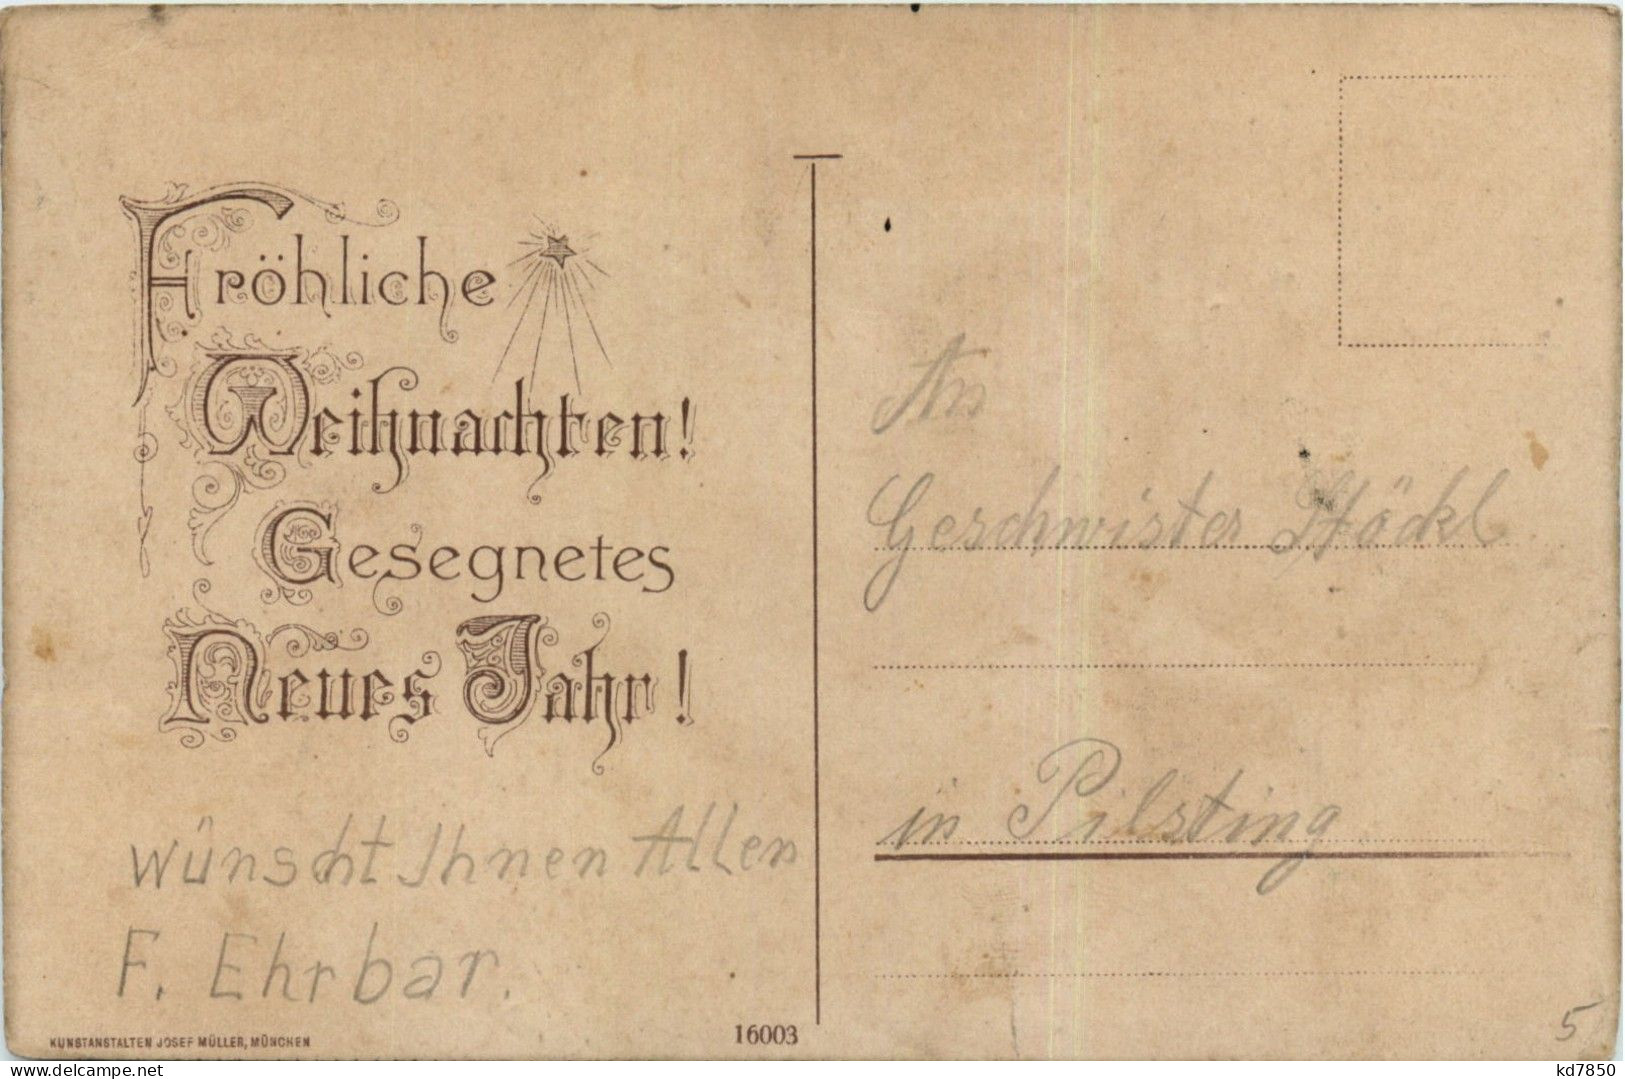 Fröhliche
Weihnachten!
Gesegnetes
Neues Jahr!
wünscht Ihnen Allen
F. Ehrbar.
KUNSTANSTALTEN JOSEF MÜLLER, MÜNCHEN
16003
An
Geschwister Stöckl
in Pilsting
5
kd7850